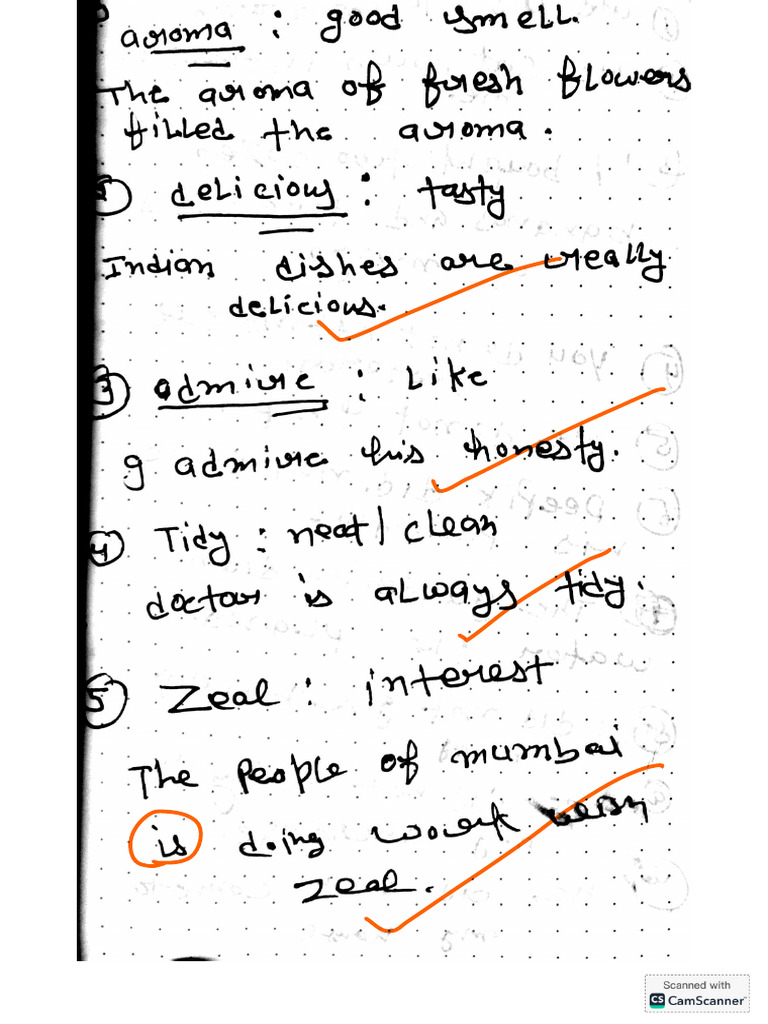 aroma : good smell.
The aroma of fresh flowers
filled the aroma.
② delicious : tasty
Indian dishes are really
delicious.
③ admire : Like
I admire his honesty.
④ Tidy : neat/clean
doctor is always tidy.
⑤ Zeal : interest
The People of mumbai
is doing work
zeal.
Scanned with
CS CamScanner